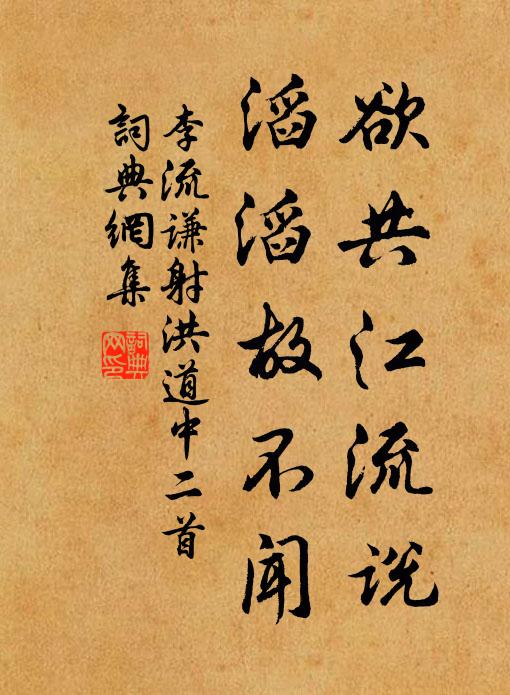 欲共江流说
滔滔故不闻
李流谦射洪道中二首
词典網集
詞典
网印